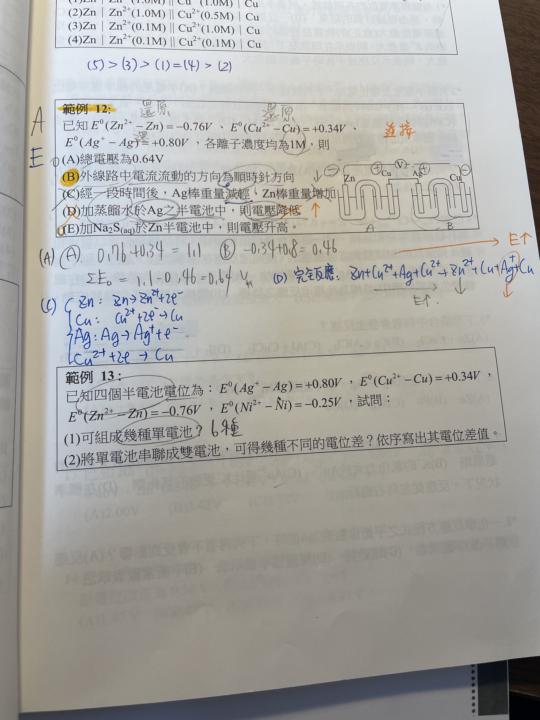 (1)Zn | Zn²⁺(1.0M) || Cu²⁺(1.0M) | Cu
(2)Zn | Zn²⁺(1.0M) || Cu²⁺(0.5M) | Cu
(3)Zn | Zn²⁺(0.1M) || Cu²⁺(1.0M) | Cu
(4)Zn | Zn²⁺(0.1M) || Cu²⁺(0.1M) | Cu
(5) > (3) > (1) = (4) > (2)
還原 還原
A
E
範例 12:
已知 E⁰(Zn²⁺−Zn)=−0.76V、E⁰(Cu²⁺−Cu)=+0.34V、
連接
E⁰(Ag⁺−Ag)=+0.80V,各離子濃度均為1M,則
(A)總電壓為0.64V
(B)外線路中電流流動的方向為順時針方向
(C)經一段時間後,Ag棒重量減輕、Zn棒重量增加
(D)加蒸餾水於Ag之半電池中,則電壓降低
(E)加Na₂S(aq)於Zn半電池中,則電壓升高。
Zn Cu V Ag Cu
A B
(A) Ⓐ 0.76+0.34 = 1.1 Ⓑ −0.34+0.8 = 0.46
E↑
ΣE₀ = 1.1−0.46 = 0.64 V
(D) 完全反應: Zn+Cu²⁺+Ag+Cu²⁺→Zn²⁺+Cu+Ag⁺+Cu
E↑
(C) Zn: Zn→Zn²⁺+2e⁻
Cu: Cu²⁺+2e⁻→Cu
Ag: Ag→Ag⁺+e⁻
Cu²⁺+2e⁻→Cu
範例 13:
已知四個半電池電位為:E⁰(Ag⁺−Ag)=+0.80V,E⁰(Cu²⁺−Cu)=+0.34V,
E⁰(Zn²⁺−Zn)=−0.76V,E⁰(Ni²⁺−Ni)=−0.25V,試問:
(1)可組成幾種單電池? 6種
(2)將單電池串聯成雙電池,可得幾種不同的電位差?依序寫出其電位差值。